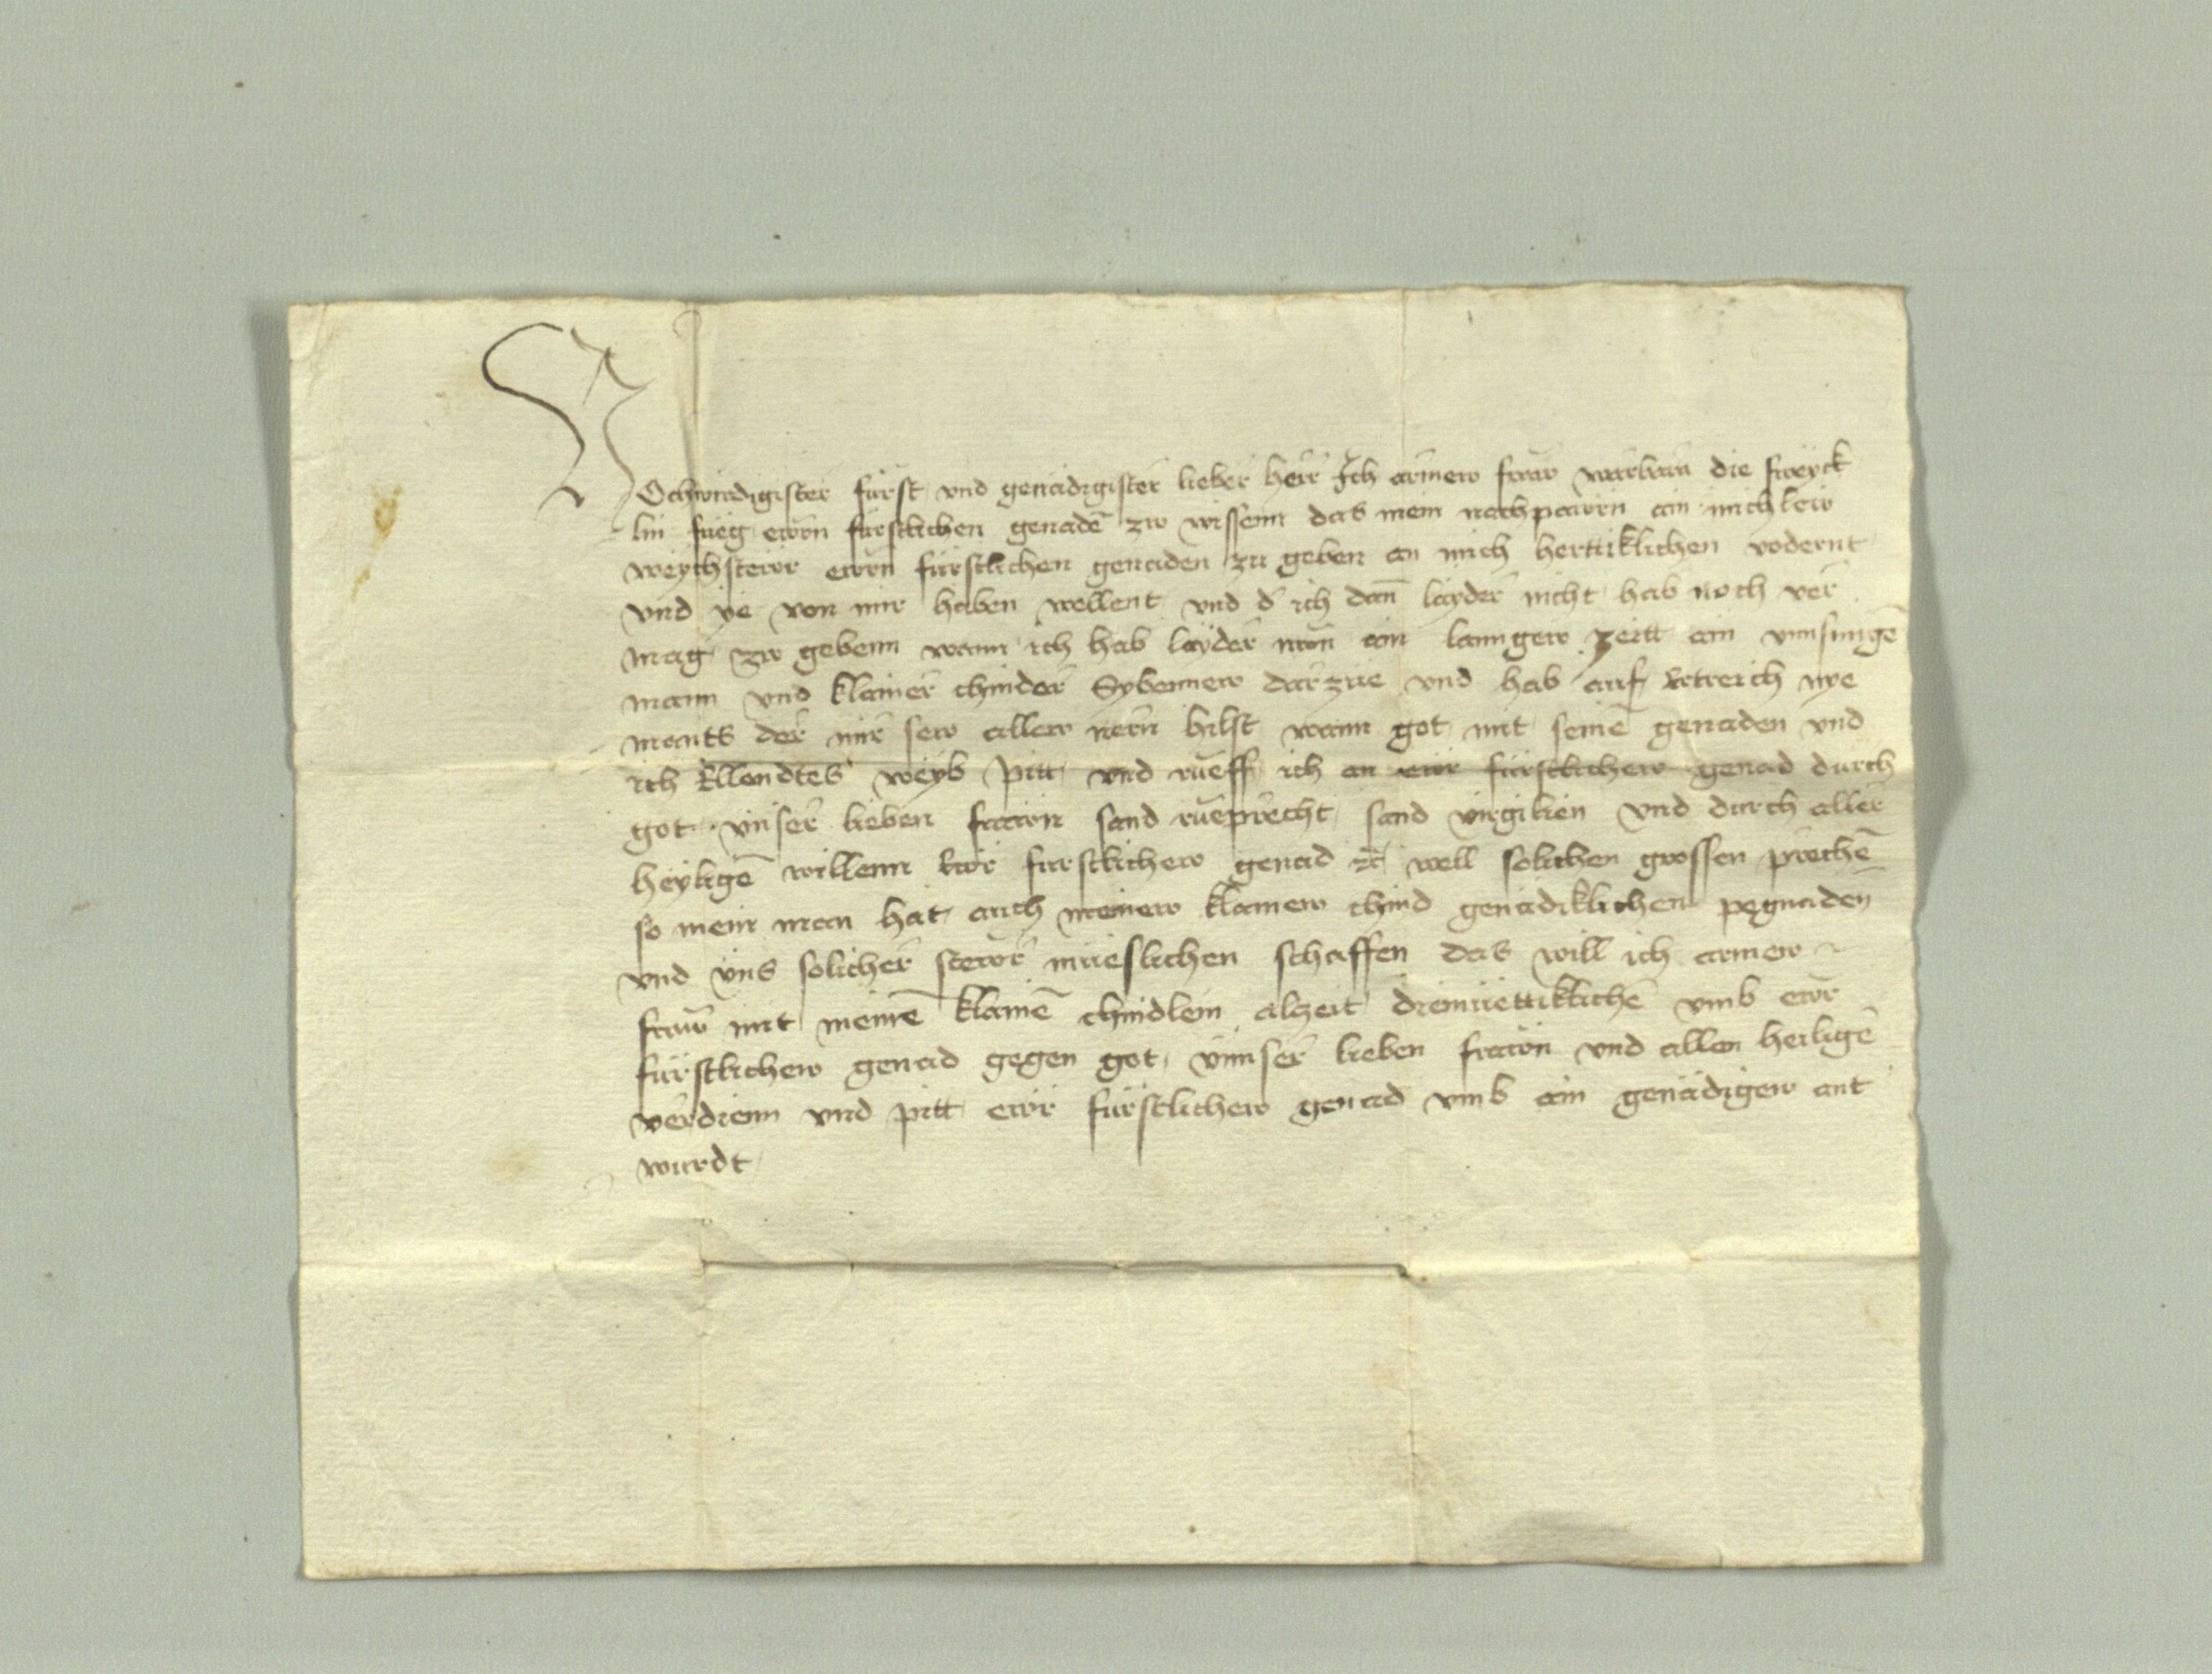 HOchwirdigister fürst vnd genädigister lieber herr Ich armew fraw warbara die
lin füeg ewrn fürstlichen genadē zw wissenn das mein nachpawrn ain michlew
weychstewr ewrn fürstlichen genaden zu geben an mich herttiklichen vodernt
vnd ye von mir haben wellent vnd d ich dan̄ layder nicht hab noch ver
mag zw gebenn wann ich hab layder nun ain lanngew zeitt ain vnnsinnigē
mann vnd klainer chinder Sybennew darzue vnd hab auf Ertreich nye
mants der mir sew allew nern hilft wann got mit seinē genaden vnd
ich Ellendtes weyb pitt vnd rueff ich an ewr fürstlichew genad durch
got vnser lieben frawn sand rueprecht sand virgilien vnd durch aller
heyligē willenn Ewr furstlichew genad well solichen grossen prechē
so mein man hat auch meinew klainew chind genädiklichen pegnaden
vnd vns solicher stewr müeslichen schaffen das will ich armew
fraw mit meinē klainē chindlein alzeit diemüettiklichē vmb ewr
fürstlichew genad gegen got vnnser lieben frawn vnd allen heiligē
verdienn vnd pitt ewr fürstlichew genad vmb ain genädigew ant
wurdt